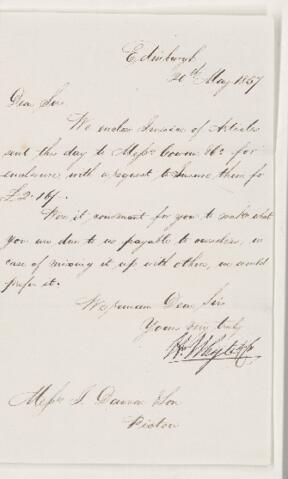 Edinburgh
20th May 1857
Dear Sir
We enclose Invoice of Articles
sent this day to Messrs Cowan &Co for
enclosure, with a request to Insure them for
£2.16/-.
Were it convenient for you to make what
you are due to us payable to ourselves, in
case of mixing it up with others, we would
prefer it.
We remain Dear Sir
Yours very truly
Wm Whyte & Co
Messrs J Dawson & Son
Pictou